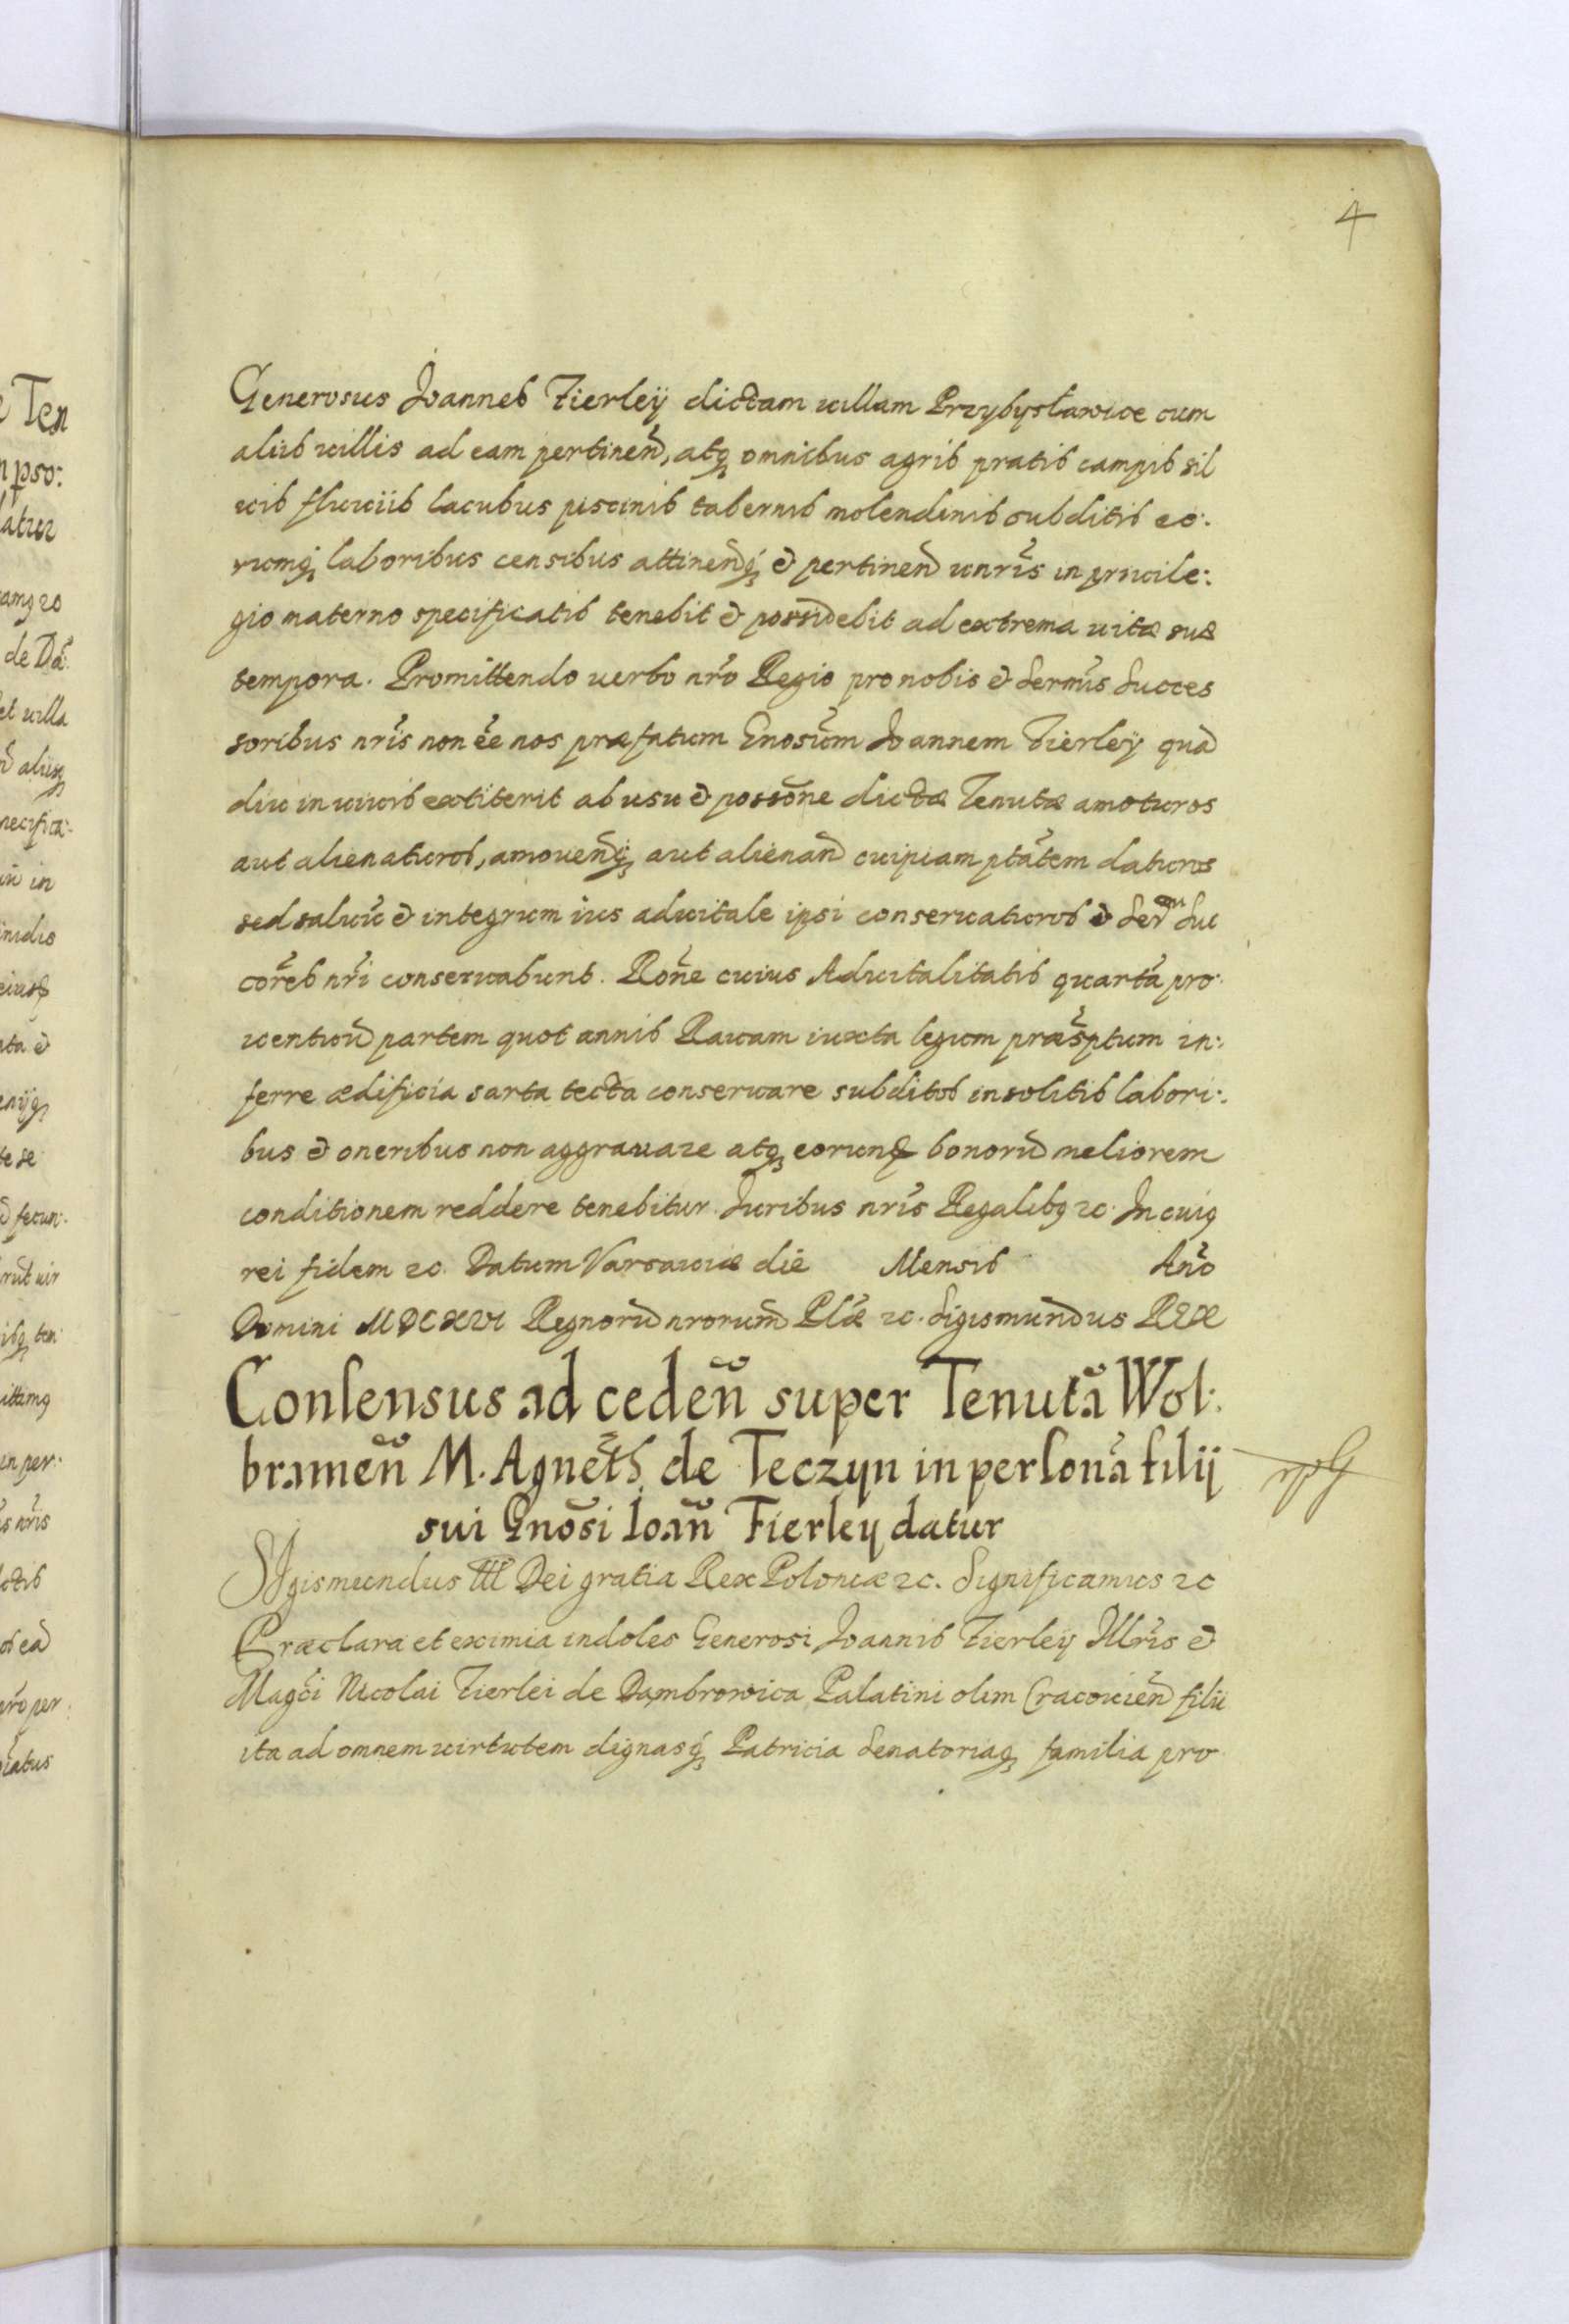 4
Generosus Joannes Fierleÿ dictam uillam Przybysławice cum
aliis uillis ad eam pertinen̄, atq̨ omnibus agris pratis campis sil
uis fluuiis lacubus piscinis tabernis molendinis subditis eo:
rumq̨ laboribus censibus attinen̄q̨ et pertinen̄ uniũris in priuile:
gio materno specificatis tenebit et possidebit ad extrema uitæ suæ
tempora. Promittendo uerbo nr̃o Regio pro nobis et Sermis Succes
soribus nr̃is non ẽe nos præfatum Gnosũm Joannem Fierleÿ quã
diu in uiuis extiterit ab usu et possõne dictæ Tenutæ amoturos
aut alienaturos, amouen̄q̨ aut alienan̄ cuipiam ptãtem daturos
sed saluũ et integrum ius aduitale ipsi conseruaturos et Serm̃i Suc
cor̃es nr̃i conseruabunt. Rõne cuius Aduitalitatis quartã pro:
uentuũ partem quot annis Rauam iuxta legum præsc̃ptum in:
ferre ædificia sarta tecta conseruare subditos insolitis labori:
bus et oneribus non aggrauare atq̨ eorund̃ bonorũ meliorem
conditionem reddere tenebitur. Juribus nr̃is Regalibq̨ ꝛc. In cuiq̨
rei fidem ꝛc. Datum Varsauiæ die Mensis Año
Domini MDCXVI Regnorũ nrorum̃ Plæ̃ ꝛc. Sigismundus REX
Consensus ad ceden̄ super Tenutã Wol:
bramen̄ M. Agnet̃h. de Teczyn in personã filij
sui Gnõsi Ioañ Fierley datur
Sigismundus III Dei gratia Rex Poloniæ ꝛc. Significamus ꝛc
Præclara et eximia indoles Generosi Joannis Fierleÿ Illr̃is et
Magc̃i Nicolai Fierlei de Dambrowica Palatini olim Cracouien̄ filii
ita ad omnem uirtutem dignasq̨ Patricia Senatoriaq̨ familia pro